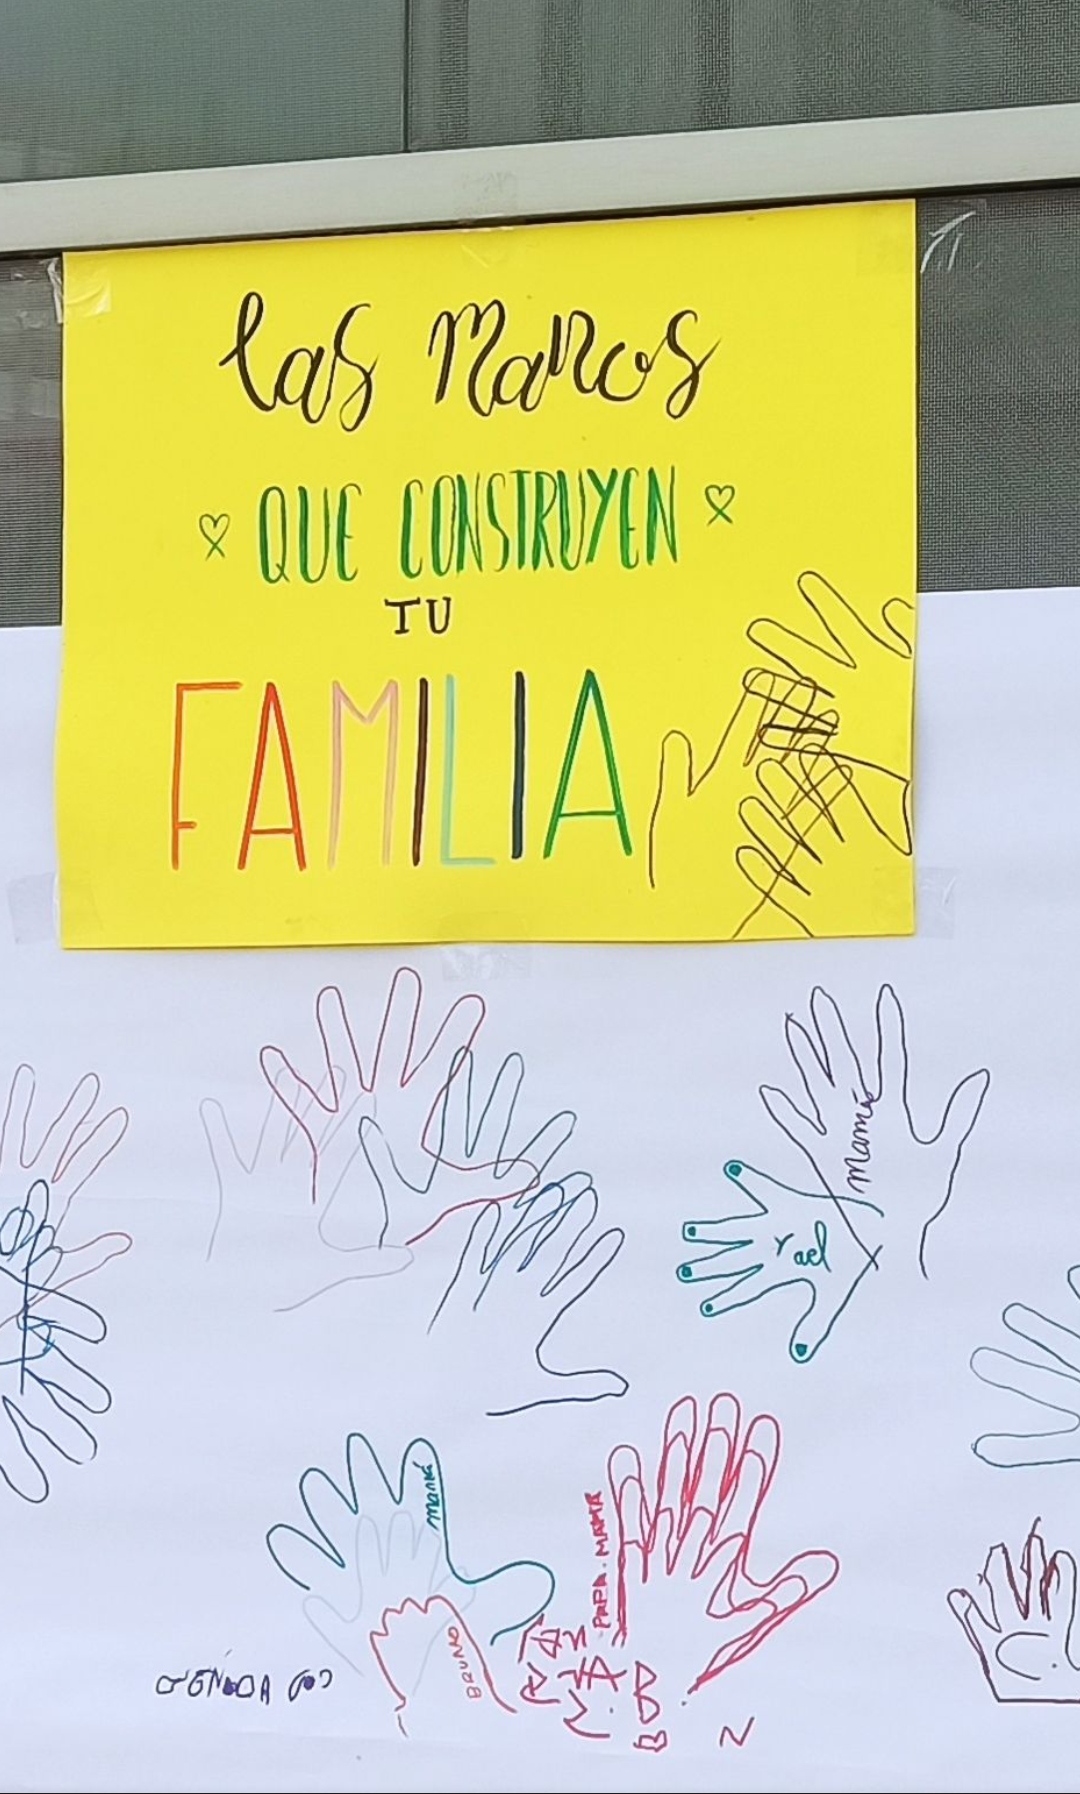 las Manos
QUE CONSTRUYEN
TU
FAMILIA
mamá
Yael
mamá
PAPA. MAMA
BRUNO